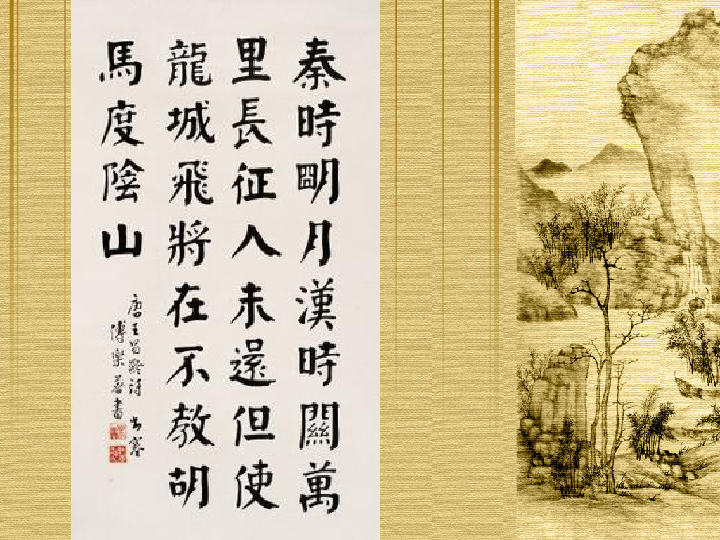 秦時明月漢時關萬
里長征人未還但使
龍城飛將在不教胡
馬度陰山
唐王昌齡詩 出塞
傅樂善書